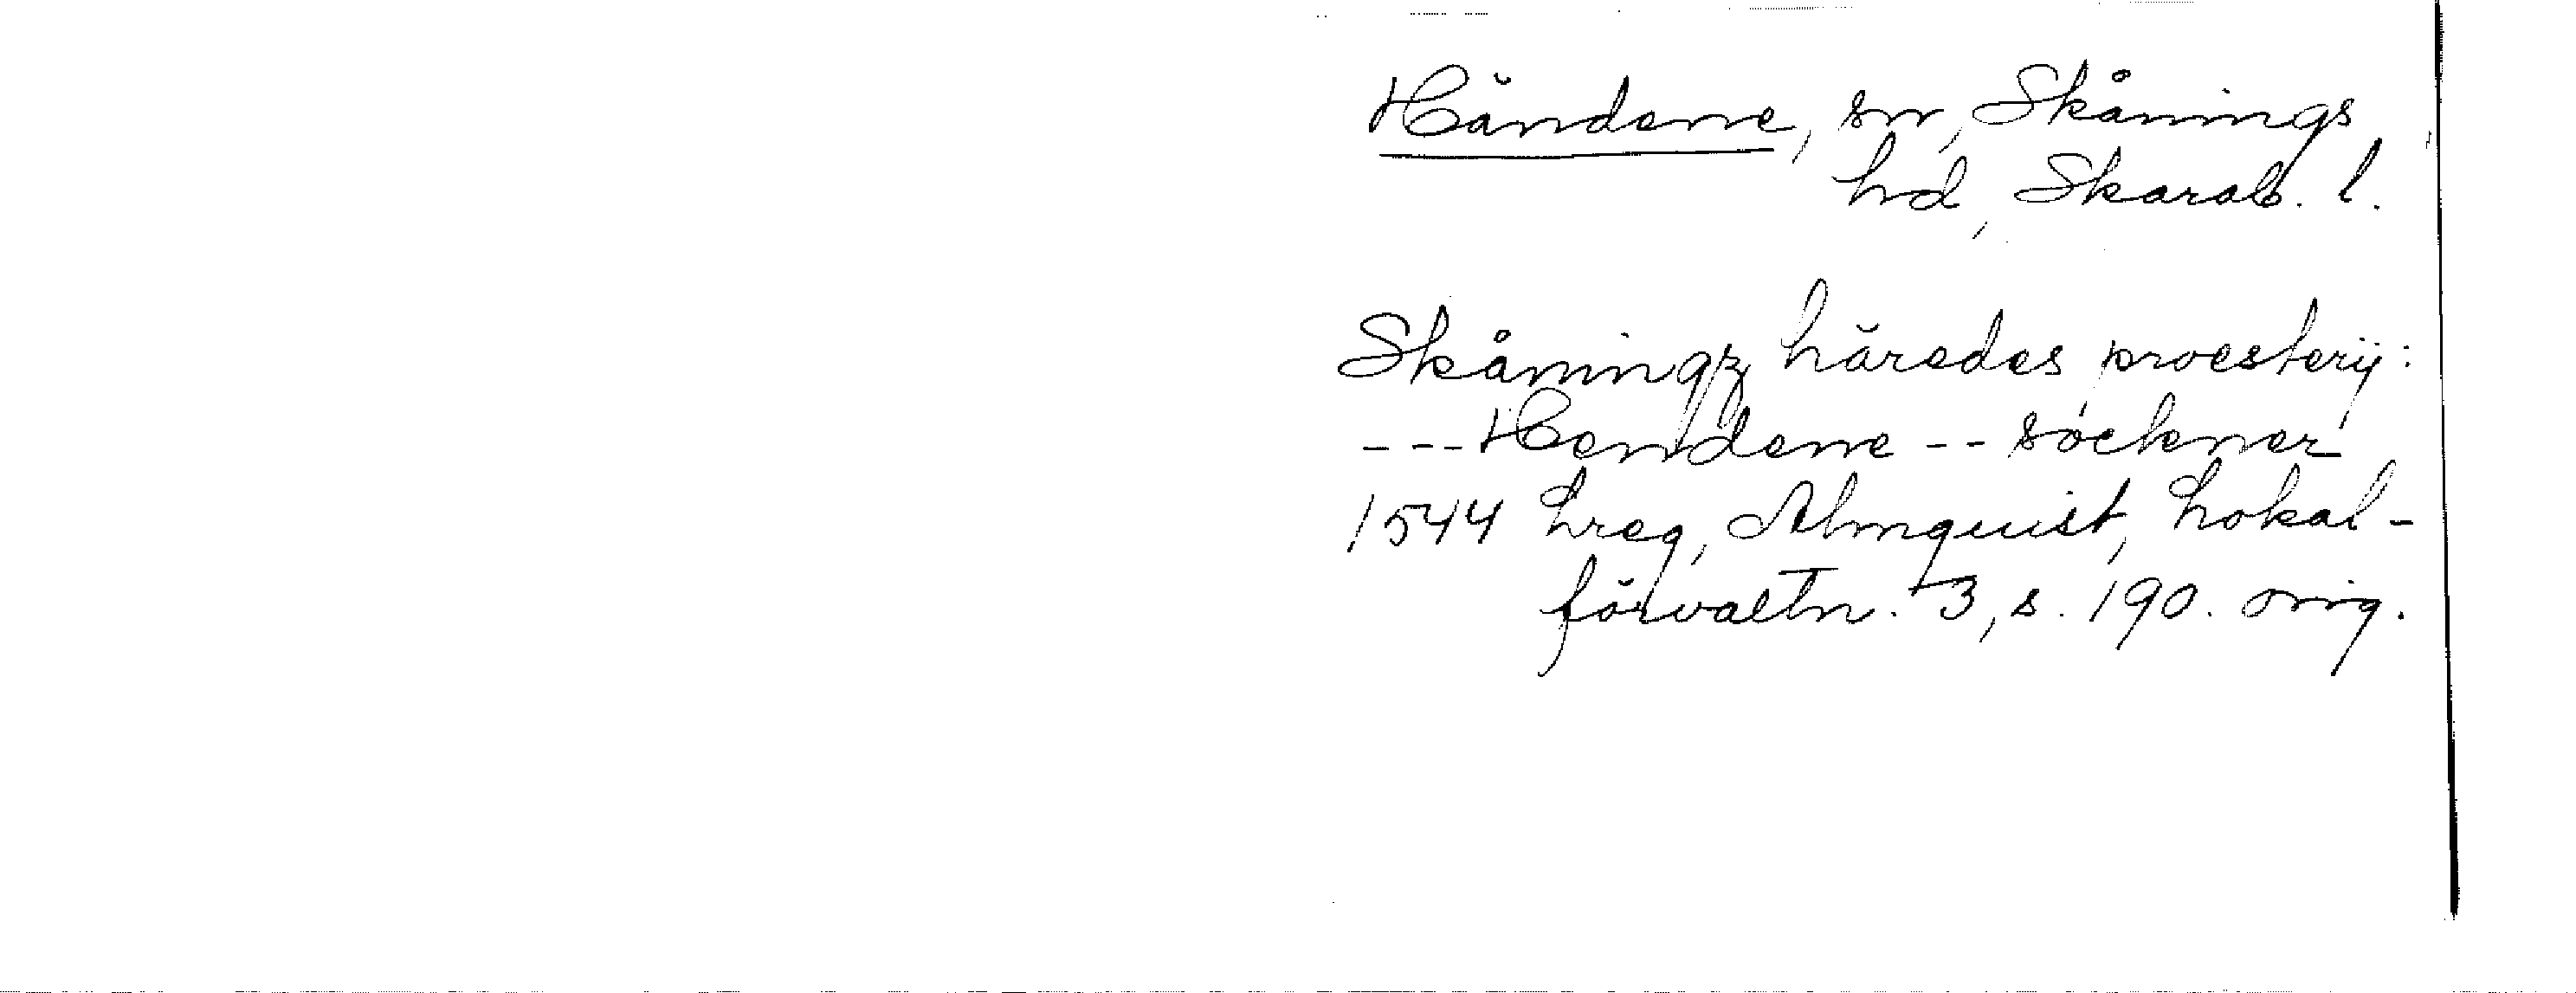 Händene, sn, Skånings
hd, Skarab. l.
Skåningz häredes proesterij:
---Hendene -- söckner
1544 Lreg, Almquist, Lokal-
förvaltn. 3, s. 190. orig.